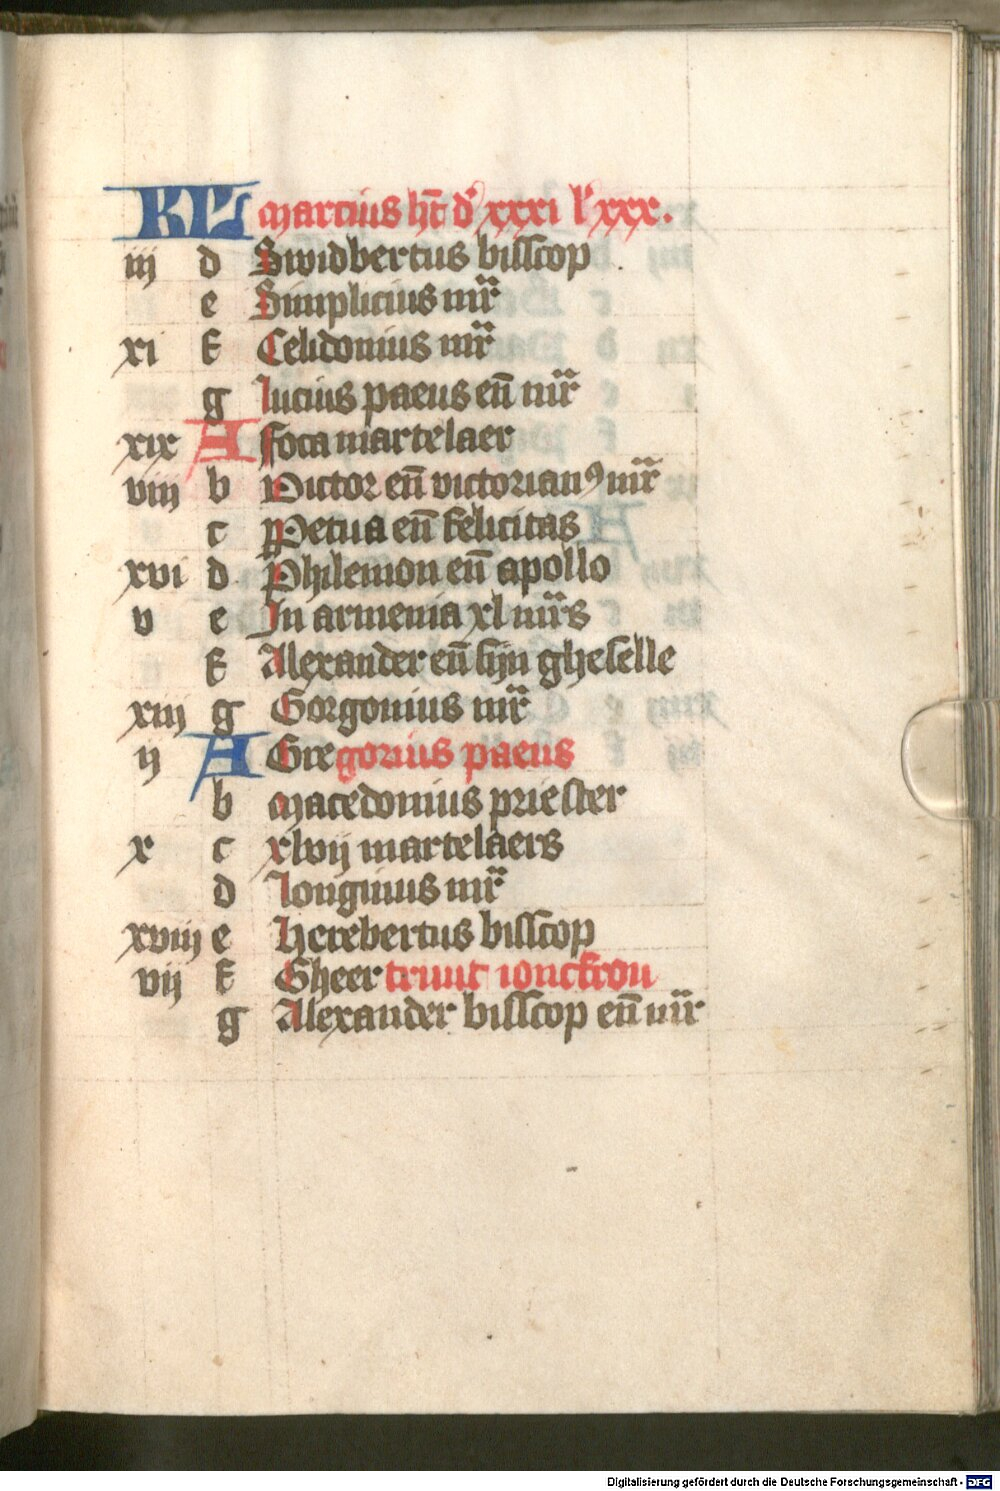 KL Marcius ht̄ d' xxxi l' xxx.
iij d Swidbertus bisscop
e Simplicius mr̄
xi f Celidonius mr̄
g Lucius paeus en̄ mr̄
xix A Foca martelaer
viij b Victor en̄ victorianꝰ mr̄
c Perpetua en̄ felicitas
xvi d Philemon en̄ apollo
v e In armenia xl mr̄s
f Alexander en̄ sijn gheselle
xiij g Gorgonius mr̄
ij A Gregorius paeus
b Macedonius priester
x c xlvij martelaers
d Longinus mr̄
xviij e Herebertus bisscop
vij f Gheertruut ionckfrou
g Alexander bisscop en̄ mr̄
Digitalisierung gefördert durch die Deutsche Forschungsgemeinschaft - DFG